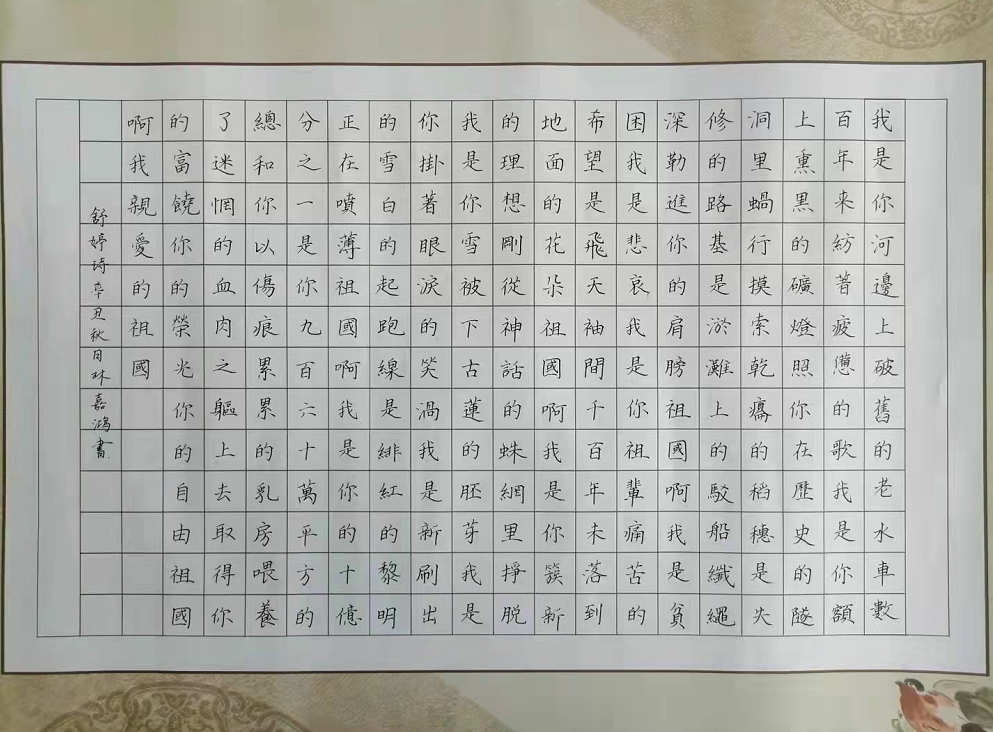 我是你河邊上破舊的老水車數
百年來紡著疲憊的歌我是你額
上熏黑的礦燈照你在歷史的隧
洞里蝸行摸索乾癟的稻穗是失
修的路基是淤灘上的駁船纖繩
深勒進你的肩膀祖國啊我是貧
困我是悲哀我是你祖輩痛苦的
希望是飛天袖間千百年未落到
地面的花朵祖國啊我是你簇新
的理想剛從神話的蛛網里掙脫
我是你雪被下古蓮的胚芽我是
你掛著眼淚的笑渦我是新刷出
的雪白的起跑線是緋紅的黎明
正在噴薄祖國啊我是你的十億
分之一是你九百六十萬平方的
總和你以傷痕累累的乳房喂養
了迷惘的血肉之軀上去取得你
的富饒你的榮光你的自由祖國
啊我親愛的祖國
舒婷詩辛丑秋月林嘉鴻書